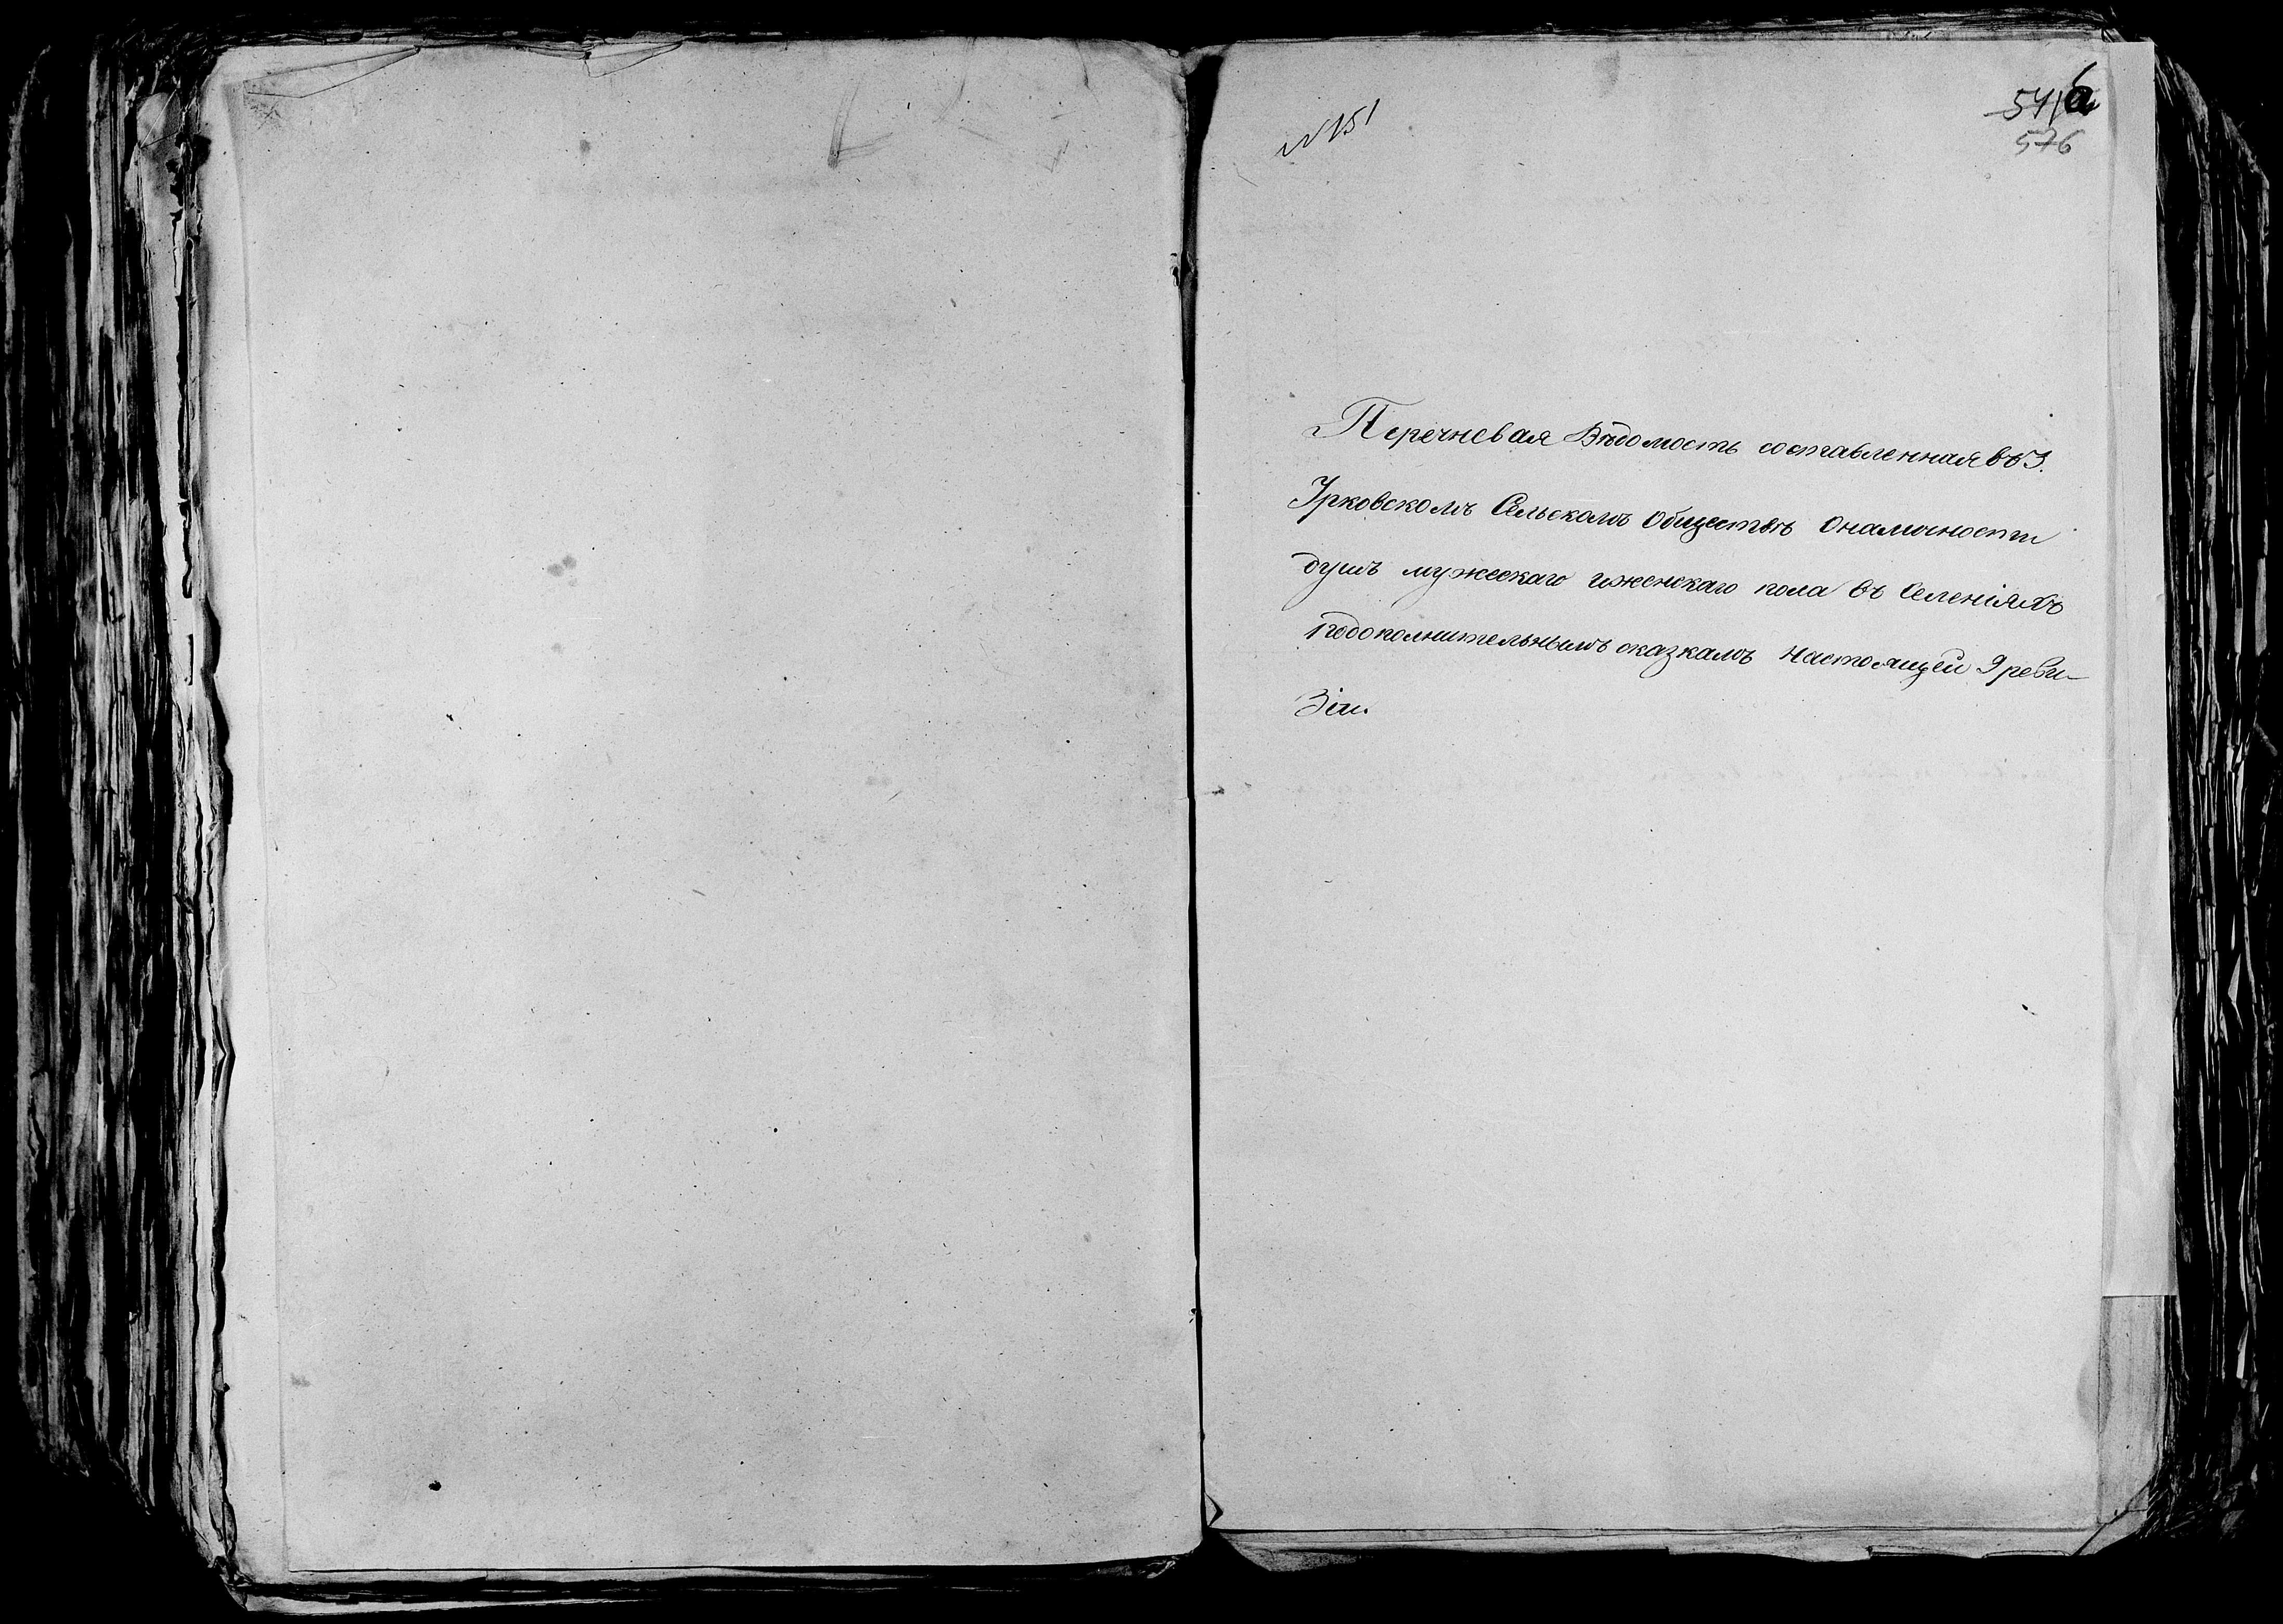 №151
576
Перечневая Вѣдомость составленная въ З.
Урковскомъ Сельскомъ Обществѣ Оналичности
душъ мужескаго иженскаго пола въ Селеніяхъ
подополнительнымъ сказкамъ Настоящей 9 реви-
Зіи.